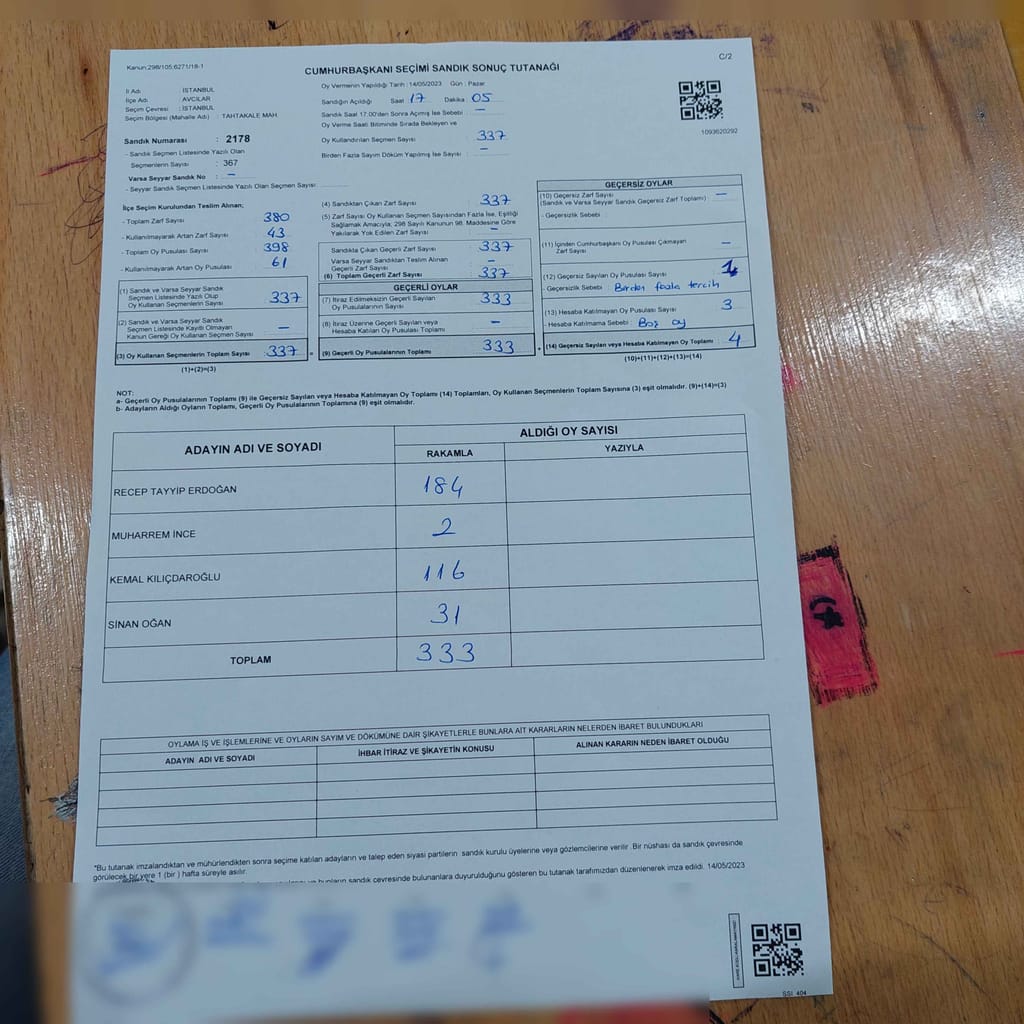 Kanun:298/105;6271/18-1
C/2
CUMHURBAŞKANI SEÇİMİ SANDIK SONUÇ TUTANAĞI
İl Adı : İSTANBUL
İlçe Adı : AVCILAR
Seçim Çevresi : İSTANBUL
Seçim Bölgesi (Mahalle Adı) : TAHTAKALE MAH.
Sandık Numarası : 2178
- Sandık Seçmen Listesinde Yazılı Olan
Seçmenlerin Sayısı : 367
Varsa Seyyar Sandık No : –
- Seyyar Sandık Seçmen Listesinde Yazılı Olan Seçmen Sayısı :
Oy Vermenin Yapıldığı Tarih : 14/05/2023 Gün : Pazar
Sandığın Açıldığı Saat 17 Dakika 05
Sandık Saat 17.00'den Sonra Açılmış İse Sebebi : –
Oy Verme Saati Bitiminde Sırada Bekleyen ve
Oy Kullandırılan Seçmen Sayısı : 337
Birden Fazla Sayım Döküm Yapılmış İse Sayısı : –
1093620292
İlçe Seçim Kurulundan Teslim Alınan;
- Toplam Zarf Sayısı : 380
- Kullanılmayarak Artan Zarf Sayısı : 43
- Toplam Oy Pusulası Sayısı : 398
- Kullanılmayarak Artan Oy Pusulası : 61
(1) Sandık ve Varsa Seyyar Sandık
Seçmen Listesinde Yazılı Olup
Oy Kullanan Seçmenlerin Sayısı : 337
(2) Sandık ve Varsa Seyyar Sandık
Seçmen Listesinde Kayıtlı Olmayan
Kanun Gereği Oy Kullanan Seçmen Sayısı : –
(3) Oy Kullanan Seçmenlerin Toplam Sayısı : 337 =
(1)+(2)=(3)
(4) Sandıktan Çıkan Zarf Sayısı : 337
(5) Zarf Sayısı Oy Kullanan Seçmen Sayısından Fazla İse, Eşitliği
Sağlamak Amacıyla; 298 Sayılı Kanunun 98. Maddesine Göre
Yakılarak Yok Edilen Zarf Sayısı : –
Sandıkta Çıkan Geçerli Zarf Sayısı : 337
Varsa Seyyar Sandıktan Teslim Alınan
Geçerli Zarf Sayısı : –
(6) Toplam Geçerli Zarf Sayısı : 337
GEÇERLİ OYLAR
(7) İtiraz Edilmeksizin Geçerli Sayılan
Oy Pusulalarının Sayısı : 333
(8) İtiraz Üzerine Geçerli Sayılan veya
Hesaba Katılan Oy Pusulası Toplamı : –
(9) Geçerli Oy Pusulalarının Toplamı : 333 +
GEÇERSİZ OYLAR
(10) Geçersiz Zarf Sayısı : –
(Sandık ve Varsa Seyyar Sandık Geçersiz Zarf Toplamı)
- Geçersizlik Sebebi :
(11) İçinden Cumhurbaşkanı Oy Pusulası Çıkmayan
Zarf Sayısı : –
(12) Geçersiz Sayılan Oy Pusulası Sayısı : 1
- Geçersizlik Sebebi : Birden fazla tercih
(13) Hesaba Katılmayan Oy Pusulası Sayısı : 3
- Hesaba Katılmama Sebebi : Boş oy
(14) Geçersiz Sayılan veya Hesaba Katılmayan Oy Toplamı : 4
(10)+(11)+(12)+(13)=(14)
NOT:
a- Geçerli Oy Pusulalarının Toplamı (9) ile Geçersiz Sayılan veya Hesaba Katılmayan Oy Toplamı (14) Toplamları, Oy Kullanan Seçmenlerin Toplam Sayısına (3) eşit olmalıdır. (9)+(14)=(3)
b- Adayların Aldığı Oyların Toplamı, Geçerli Oy Pusulalarının Toplamına (9) eşit olmalıdır.
ADAYIN ADI VE SOYADI
ALDIĞI OY SAYISI
RAKAMLA YAZIYLA
RECEP TAYYİP ERDOĞAN 184
MUHARREM İNCE 2
KEMAL KILIÇDAROĞLU 116
SİNAN OĞAN 31
TOPLAM 333
OYLAMA İŞ VE İŞLEMLERİNE VE OYLARIN SAYIM VE DÖKÜMÜNE DAİR ŞİKAYETLERLE BUNLARA AİT KARARLARIN NELERDEN İBARET BULUNDUKLARI
ADAYIN ADI VE SOYADI İHBAR İTİRAZ VE ŞİKAYETİN KONUSU ALINAN KARARIN NEDEN İBARET OLDUĞU
*Bu tutanak imzalandıktan ve mühürlendikten sonra seçime katılan adayların ve talep eden siyasi partilerin sandık kurulu üyelerine veya gözlemcilerine verilir. Bir nüshası da sandık çevresinde
görülecek bir yere 1 (bir) hafta süreyle asılır.
ve bunların sandık çevresinde bulunanlara duyurulduğunu gösteren bu tutanak tarafımızdan düzenlenerek imza edildi. 14/05/2023
SSI_404